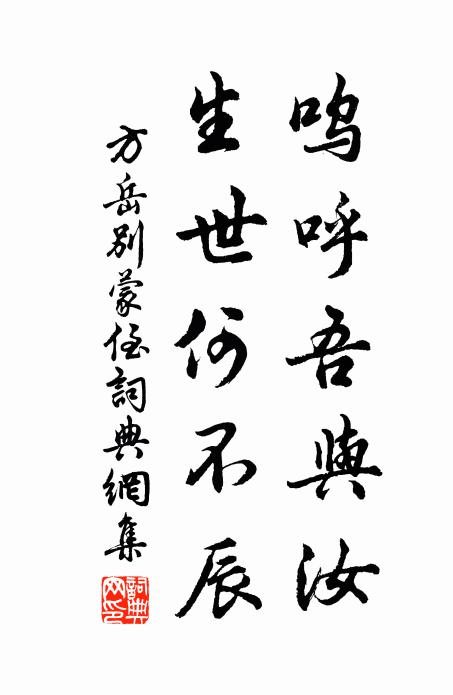 嗚呼吾與汝
生世何不辰
方岳别蒙侄詞典網集
詞典
網印